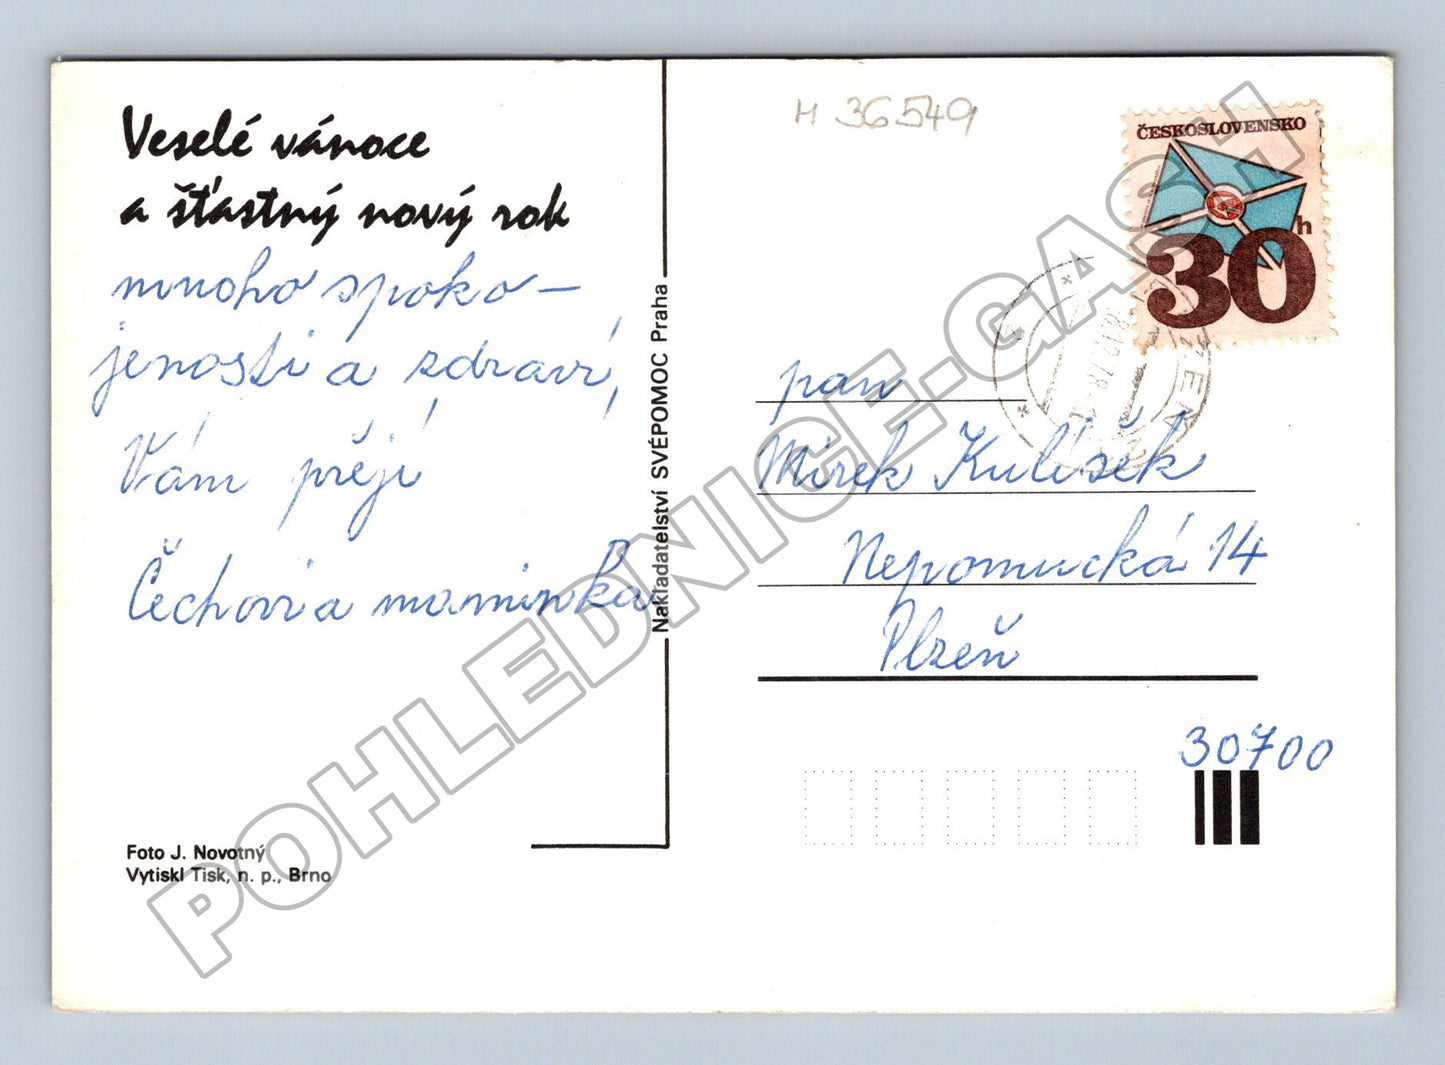 Veselé vánoce
a šťastný nový rok
mnoho spoko-
jenosti a zdraví,
Vám přejí
Čechovi a maminka
Foto J. Novotný
Vytiskl Tisk, n. p., Brno
Nakladatelství SVÉPOMOC Praha
H 36549
ČESKOSLOVENSKO
30h
pan
Mirek Kulíšek
Nepomucká 14
Plzeň
30700
POHLEDNICE-GASH